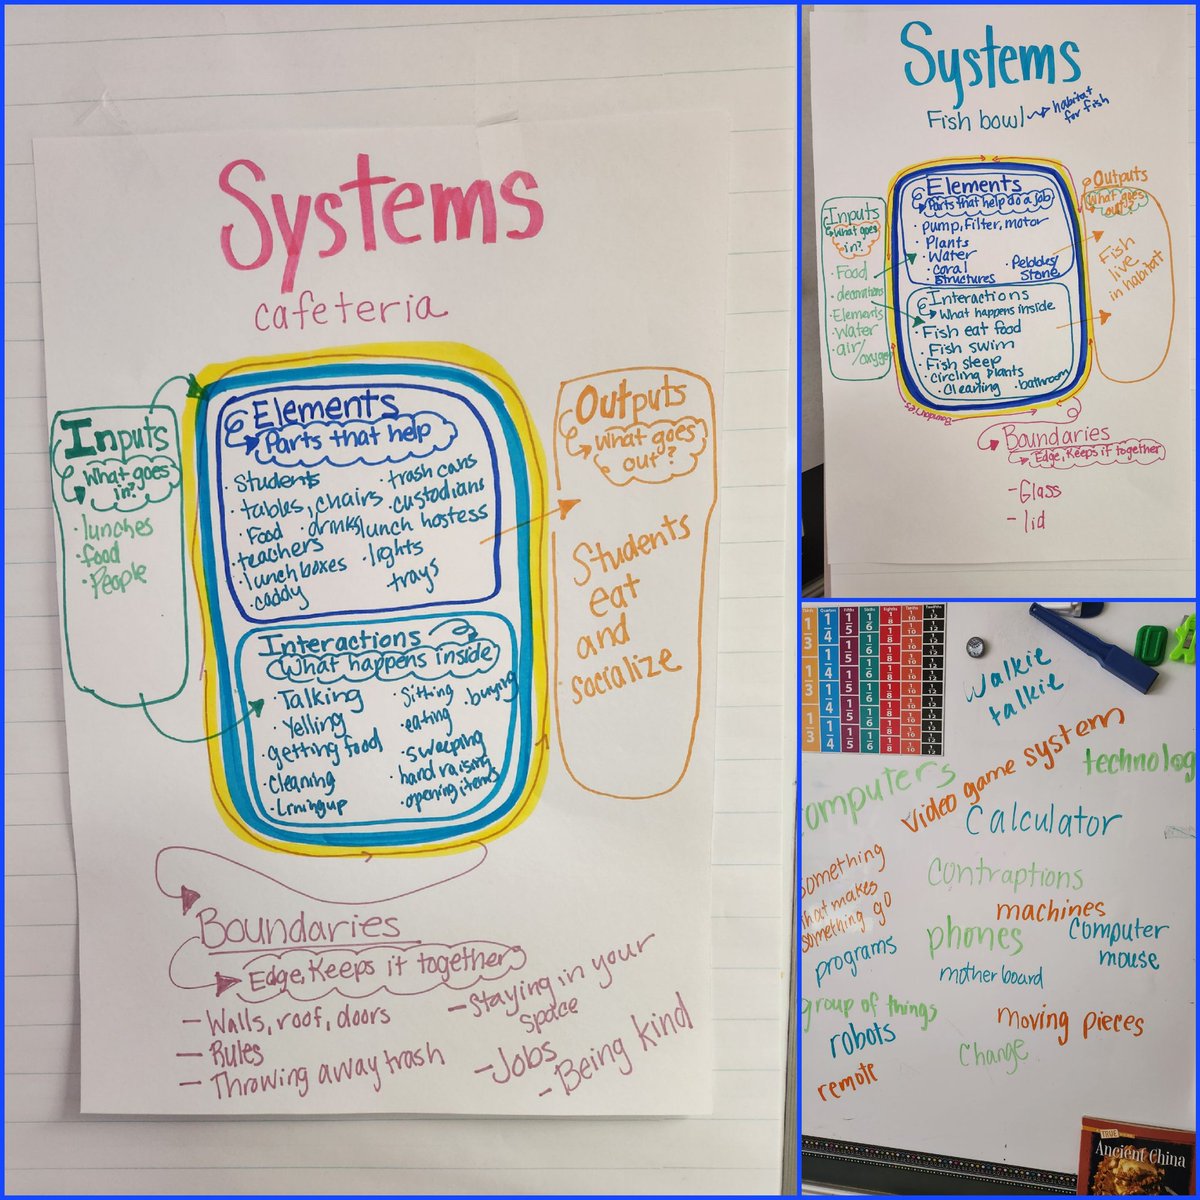 Systems
cafeteria
Inputs
What goes
in?
·lunches
·food
·People
Elements
Parts that help
·Students
·tables, chairs
·Food ·drinks
·teachers
·lunchboxes
·caddy
·trash cans
·custodians
lunch hostess
·lights
trays
Interactions
What happens inside
·Talking
·Yelling
·getting food
·cleaning
·Lining up
·Sitting
·buying
·eating
·sweeping
·hand raising
·opening items
Outputs
What goes
out?
Students
eat
and
socialize
Boundaries
Edge, Keeps it together
- Walls, roof, doors
- Rules
- Throwing away trash
- Staying in your
space
- Jobs
- Being kind
Systems
Fish bowl
habitat
for fish
Inputs
What goes
in?
·Food
·decorations
·Elements
·Water
·air/
oxygen
Elements
Parts that help do a job
·pump, Filter, motor
·Plants
·Water
·coral
structures
·Pebbles/
Stone
Interactions
What happens inside
·Fish eat food
·Fish swim
·Fish sleep
·circling plants
·Cleaning
·bathroom
Outputs
What goes
out?
Fish
live
in habitat
Boundaries
Boundaries
Edge, Keeps it together
- Glass
- lid
Thirds Quarters Fifths Sixths Eighths Tenths Twelfths
1/3 1/4 1/5 1/6 1/8 1/10 1/12
1/3 1/4 1/5 1/6 1/8 1/10 1/12
1/3 1/4 1/5 1/6 1/8 1/10 1/12
walkie
talkie
video game system
technolog
omputers
Calculator
something
that makes
something go
contraptions
machines
programs
phones
Computer
mouse
mother board
group of things
moving pieces
robots
Change
remote
TRUE
Ancient China